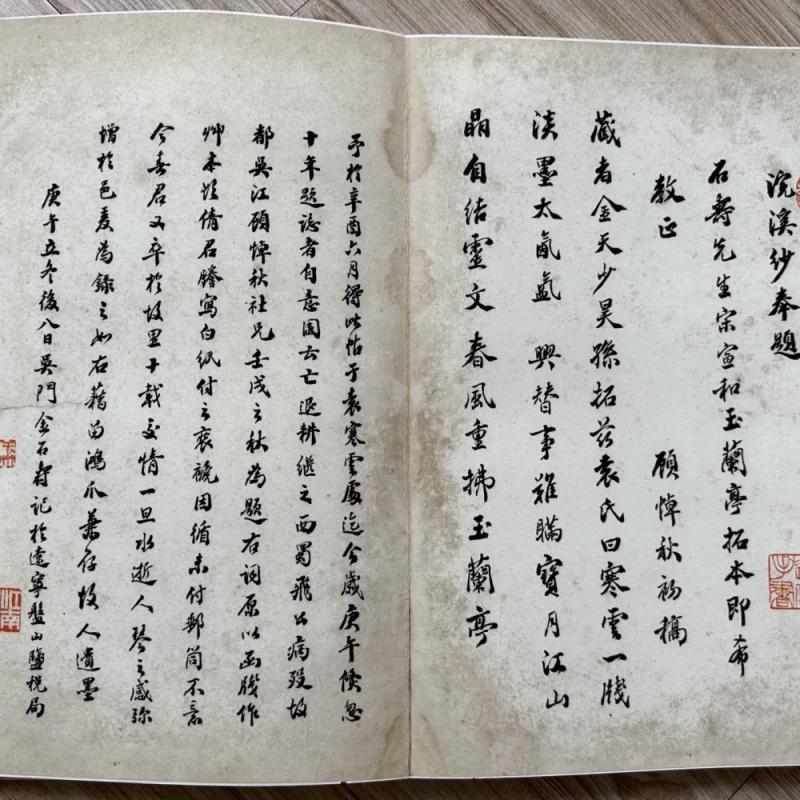 浣溪紗奉題
石壽先生宋宣和玉蘭亭拓本即希
教正　顧悼秋初稿
藏者金天少昊孫拓茲袁氏曰寒雲一牋
淡墨太氤氳　興替事難瞞寶月江山
晶自結靈文春風重拂玉蘭亭
予於辛酉六月得此帖于袁寒雲處迄今歲庚午倏忽
十年題誌者自意園云亡退耕繼之西蜀飛公病歿故
都吳江顧悼秋社兄壬戌之秋為題右詞原以函牋作
艸本欲倩君謄寫白紙付之裝褫因循未付郵筒不意
今春君又卒於故里十載交情一旦水逝人琴之感彌
增於邑爰為錄之如右藉留鴻爪兼存故人遺墨
庚午立冬後八日吳門金石壽記於遼寧盤山鹽稅局
江南